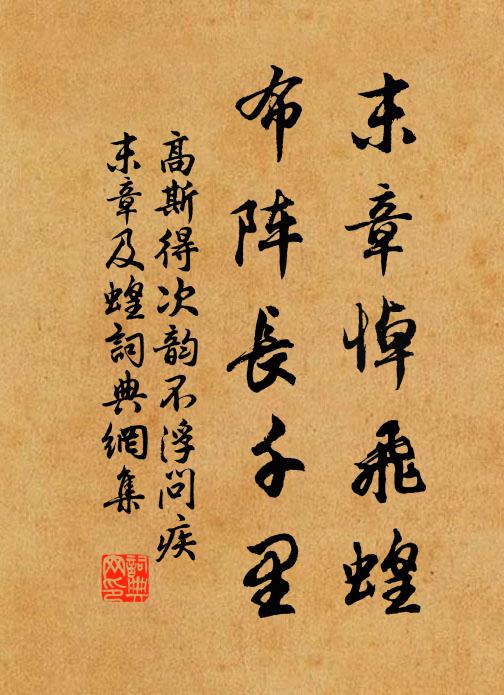 末章悼飛蝗
布阵長千里
高斯得次韵不浮問疾
末章及蝗詞典網集
詞典网印